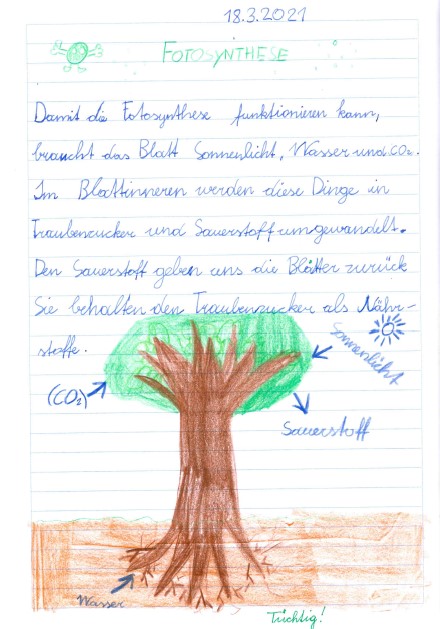 18.3.2021
FOTOSYNTHESE
Damit die Fotosynthese funktionieren kann,
braucht das Blatt Sonnenlicht, Wasser und CO₂.
Im Blattinneren werden diese Dinge in
Traubenzucker und Sauerstoff umgewandelt.
Den Sauerstoff geben uns die Blätter zurück
Sie behalten den Traubenzucker als Nähr-
stoffe.
Sonnenlicht
(CO₂)
Sauerstoff
Wasser
Tüchtig!